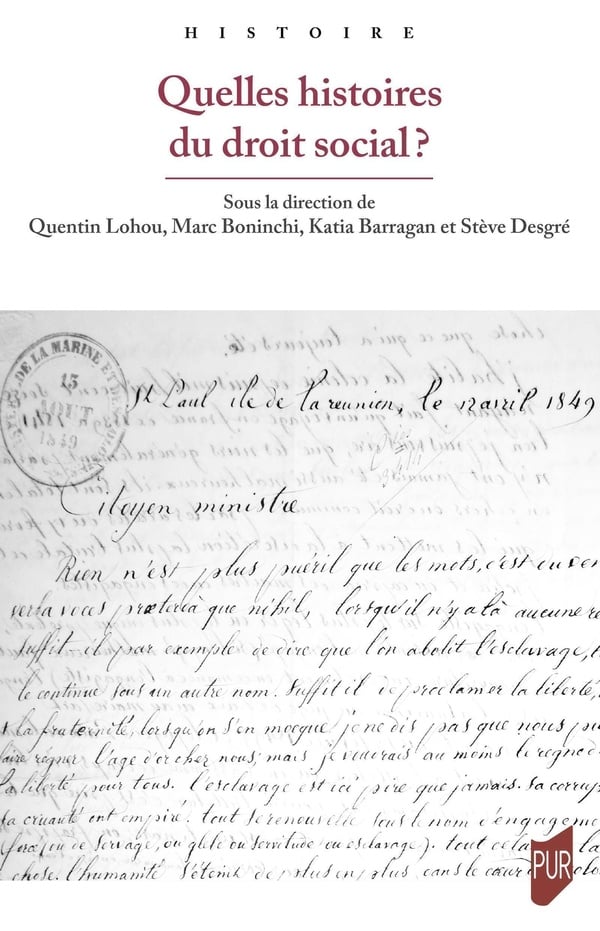 HISTOIRE
Quelles histoires
du droit social ?
Sous la direction de
Quentin Lohou, Marc Boninchi, Katia Barragan et Stève Desgré
DE LA MARINE ET DES
15
AOUT
1849
St Paul ile de la reunion, le 12 avril 1849
Citoyen ministre
Rien n'est plus puéril que les mots, c'est
verba voces prœtereà que nihil, lorsqu'il n'y a là aucune
suffit-il par exemple de dire que l'on abolit l'esclavage,
le continue sous un autre nom. suffit il de proclamer la liberté,
la fraternité, lorsqu'on s'en mocque je ne dis pas que nous
faire régner l'age d'or chez nous; mais je voudrais au moins le regne
la liberté pour tous. l'esclavage est ici pire que jamais. sa
sa cruauté ont empiré. tout se renouvelle sous le nom
ou de servage, ou glèbe ou servitude ou esclavage). tout cela la
chose. l'humanité s'éteint de plus en plus dans le cœur
PUR